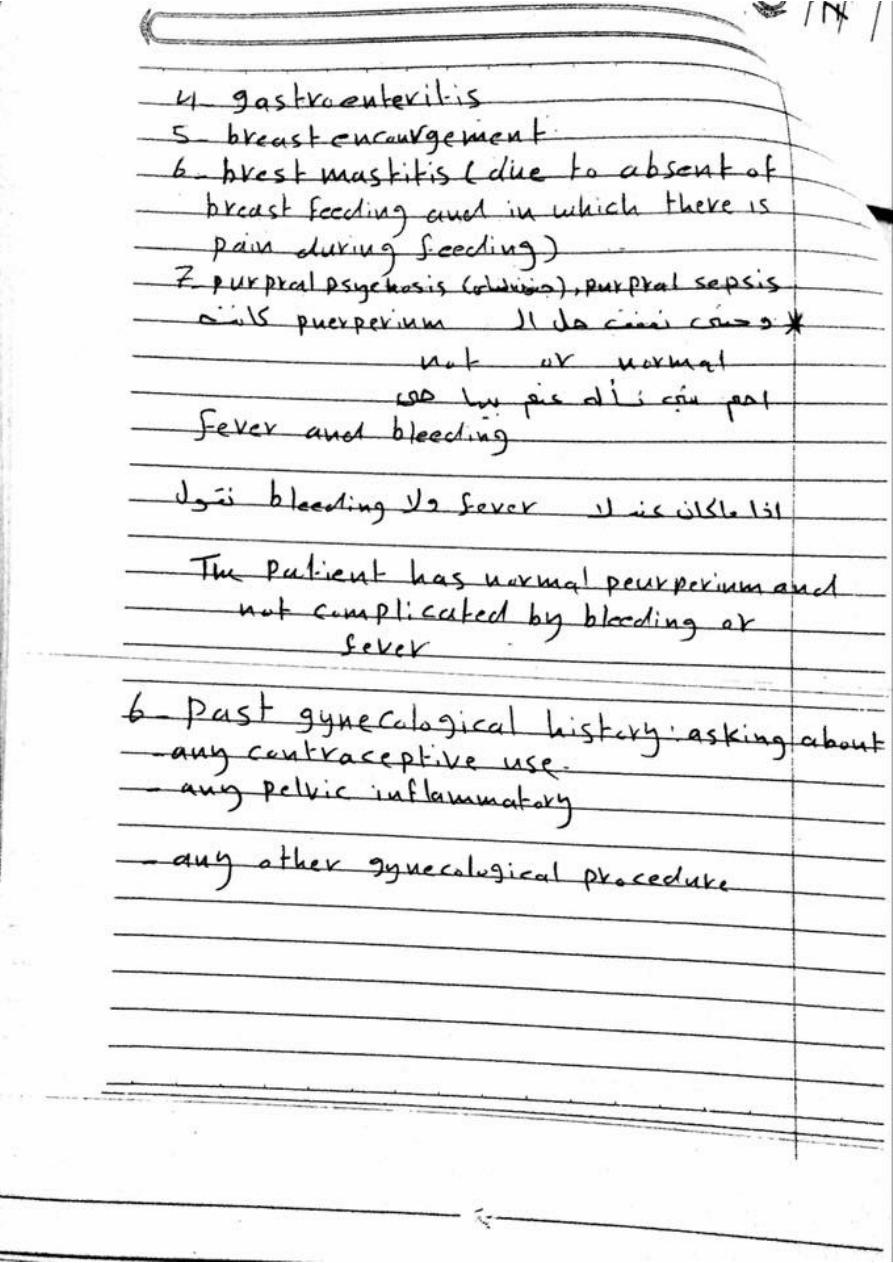 4- gastroenteritis
5- breast encourgement
6- brest mastitis (due to absent of
breast feeding and in which there is
pain during feeding)
7- purpral psychosis ( ), purpral sepsis
* وحتى نعرف هل ال puerperium كانت
normal or not
اهم شي نسأله عنهم بيها هي
fever and bleeding
اذا ماكان عنده لا fever ولا bleeding نقول
The patient has normal peurperium and
not complicated by bleeding or
fever
6- Past gynecological history: asking about
- any contraceptive use.
- any pelvic inflammatory
- any other gynecological procedure